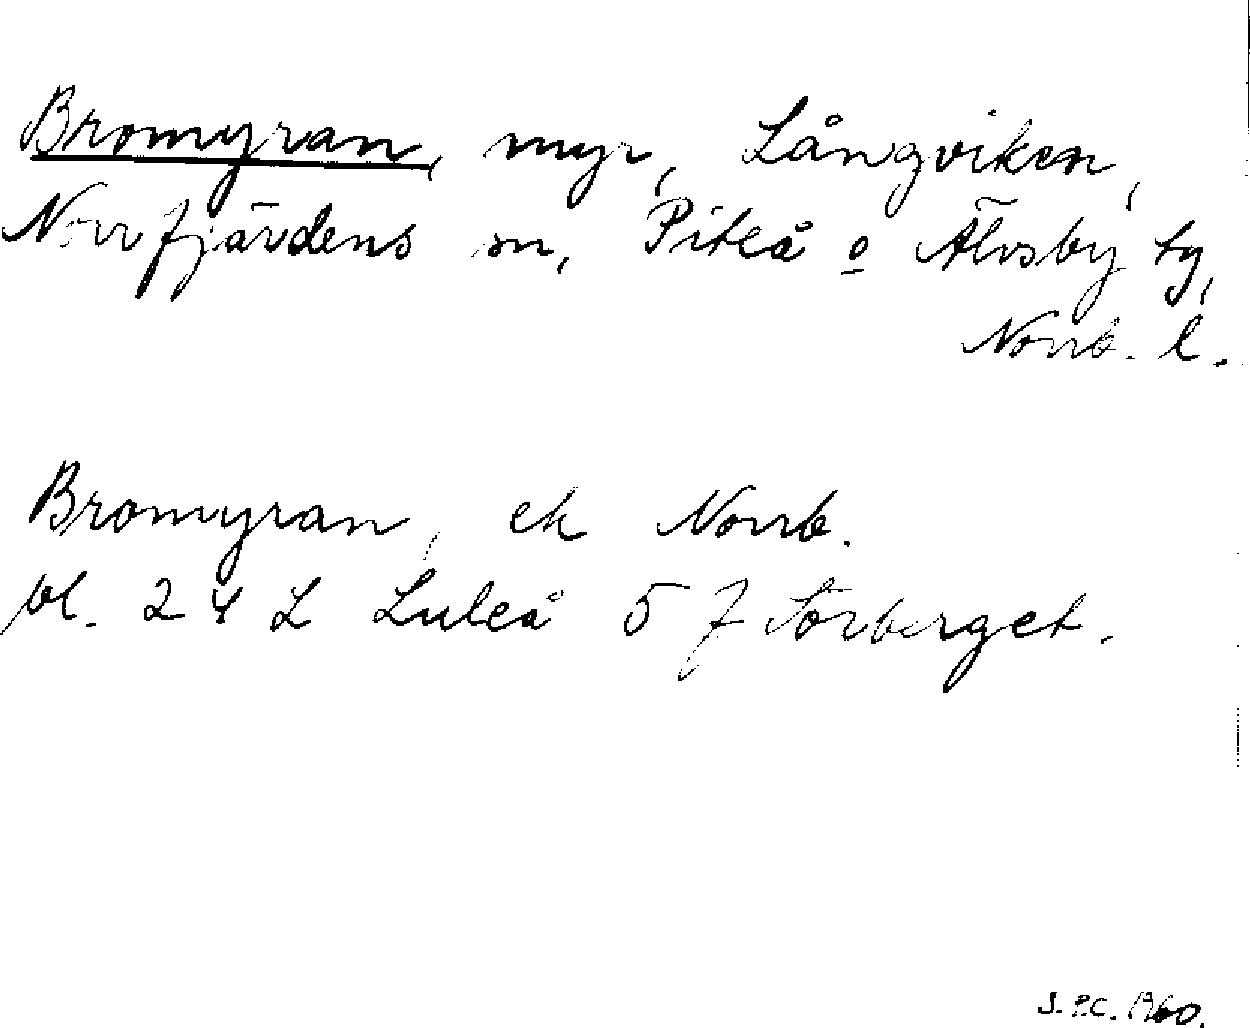 Bromyran, myr, Långviken,
Norrfjärdens sn, Piteå o Älvsby tg,
Norrb. l.
Bromyran, ek Norrb.
bl. 24 L Luleå 5 f Storberget.
J. P.C. 1960.